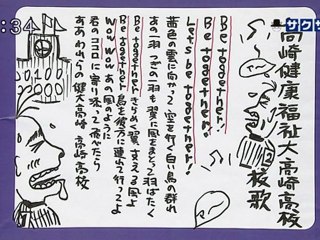 :34
サクサク
高崎健康福祉大高崎高校
校歌
Be together!
Be together!
Let's be together!
茜色の雲に向かって 空を行く白い鳥の群れ
あの一羽 つぎの一羽も翼に風をまとって羽ばたく
Be together きらめく翼 支える風よ
Be together 鳥を彼方に連れて行ってよ
Wow Wow あの風のように
君のココロに寄り添って 飛べたら
ああわれらの 健大高崎 高崎高校